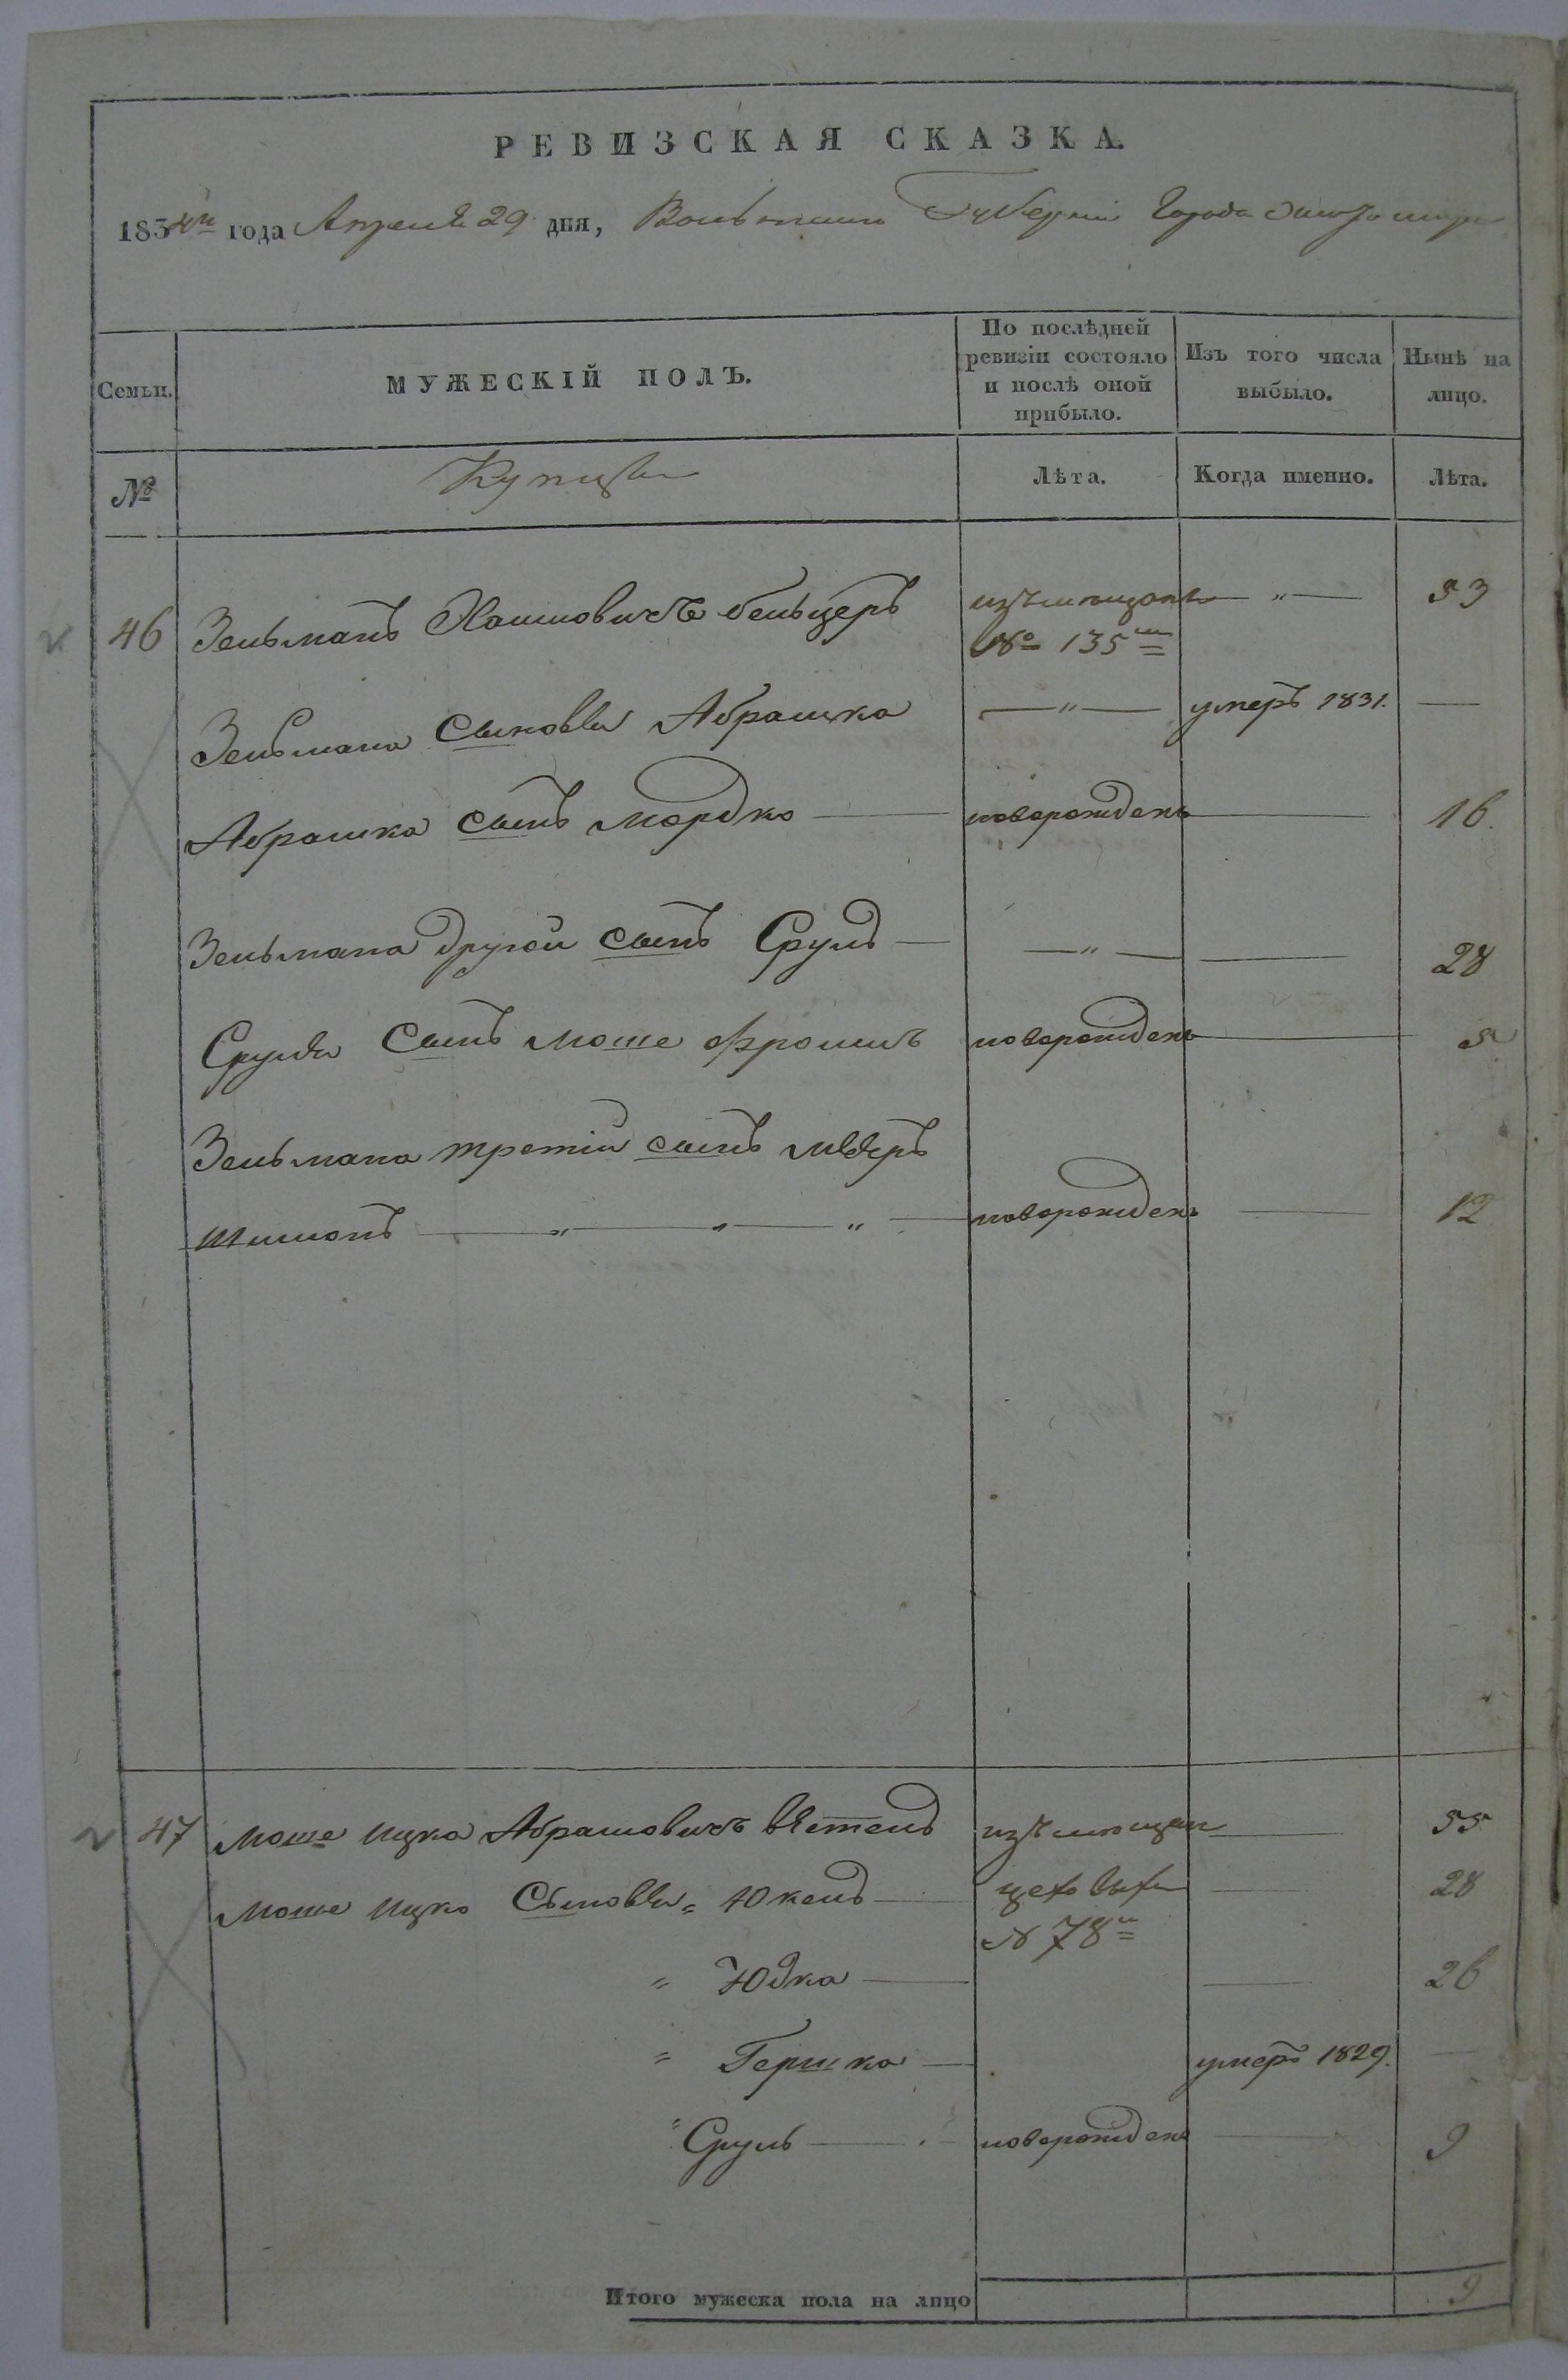 РЕВИЗСКАЯ СКАЗКА.
1834го года Апреля 29 дня, Волынской Губернии Города Житомира
Семьи.
МУЖЕСКІЙ ПОЛЪ.
По послѣдней ревизіи состояло и послѣ оной прибыло.
Изъ того числа выбыло.
Нынѣ на лицо.
№
Купцы
Лѣта.
Когда именно.
Лѣта.
46 Зельманъ Хаимовичъ бельцеръ изъ мещанъ — " — 53
№ 135
Зельмана Сыновья Абрашка — " — умеръ 1831. —
Абрашка сынъ мордко — новорожденъ — 16.
Зельмана другой сынъ Сруль — — " — — 28
Сруля Сынъ моше новорожденъ — 5
Зельмана третій сынъ мееръ
шимонъ — " — " — " — новорожденъ — 12
47 моше ицко Абрамовичъ изъ мещан — 55
моше ицко Сыновья = Юкель — цеховыхъ — 28
№ 78
" Юдка — — 26
" Гершко — умеръ 1829. —
" Сруль — новорожденъ — 9
Итого мужеска пола на лицо 9